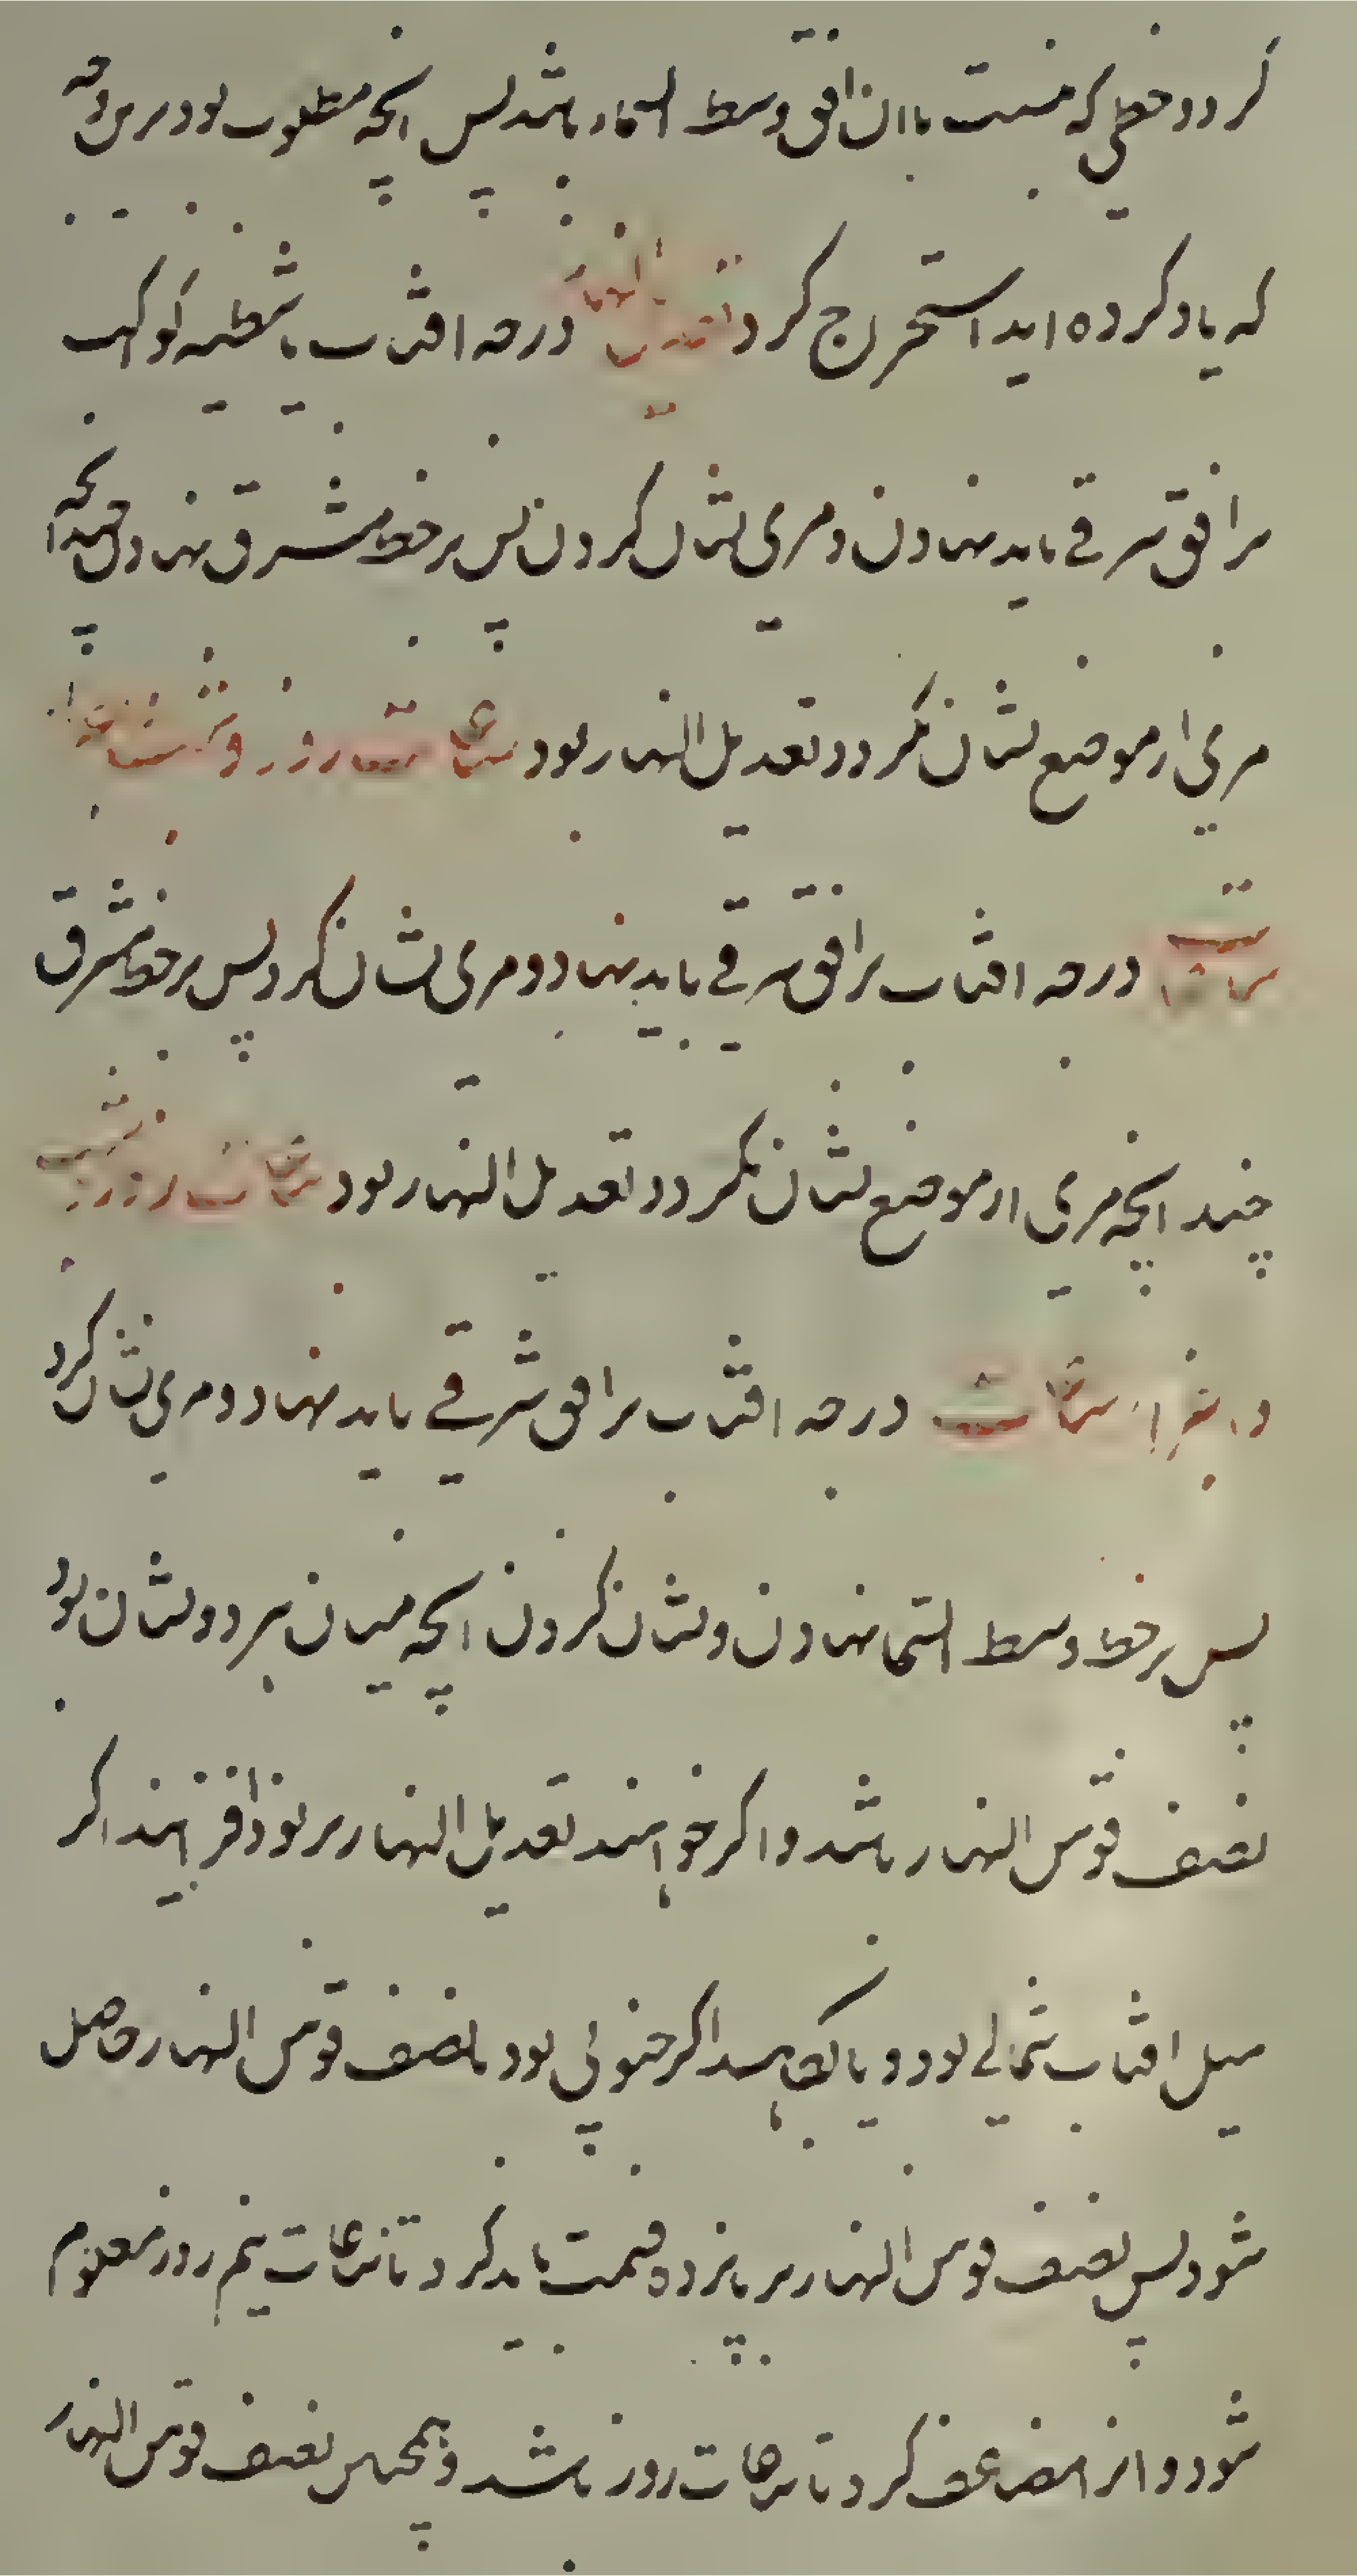 گردد و خطی که منسبت با آن افق وسط السماء باشد پس آنچه مطلوب بود بر این وجه
که یاد کرده اید استخراج کرد تعدیل النهار درجه افتاب یا شظیه کوکب
بر افق شرقی باید نهادن و مری نشان کردن پس بر خط مشرق نهادن چندانچه
مری از موضع نشان بگردد تعدیل النهار بود ساعات روز و شب
درجه افتاب بر افق شرقی باید نهاد و مری نشان کرد پس بر خط مشرق
چند آنچه مری از موضع نشان بگردد تعدیل النهار بود ساعات روز و شب
و اجزاء ساعات درجه افتاب بر افق شرقی باید نهاد و مری نشان کرد
پس بر خط وسط السما نهادن و نشان کردن آنچه میان هر دو نشان بود
نصف قوس النهار باشد و اگر خواهند تعدیل النهار بر نود افزایند اگر
میل افتاب شمالی بود و یا بکاهند اگر جنوبی بود تا نصف قوس النهار حاصل
شود پس نصف قوس النهار بر پانزده قسمت باید کرد تا ساعات نیم روز معلوم
شود و انرا مضاعف کرد تا ساعات روز باشد و همچنین نصف قوس النهار